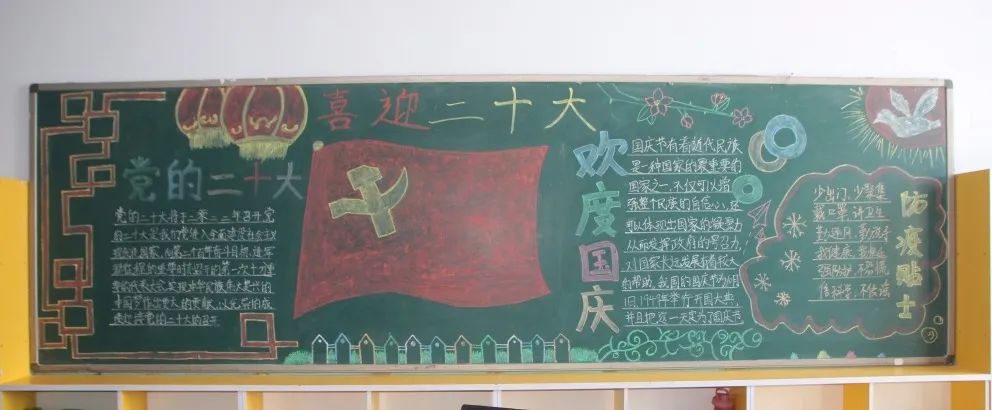 喜迎二十大
党的二十大
党的二十大将于二零二二年召开党
的二十大是我们党进入全面建设社会主义
现代化国家，向第二个百年奋斗目标，进军
新征程的重要时刻召开的第一次十分重
要的代表大会，实现中华民族伟大复兴的
中国梦作出更大的贡献，以优异的成
欢度国庆
国庆节有着近代民族
是一种国家的象重要的
国家之一，不仅可以增
强整个民族的自信心，还
可以体现出国家的凝聚力
从而发挥政府的号召力，
对国家长远发展有着较大
的帮助，我国的国庆节为
1949年举办开国大典，
并且把这一天定为了国庆节
防疫贴士
少出门，少聚集
戴口罩，讲卫生
勤通风，勤洗手
不恐慌
信科学，不传谣